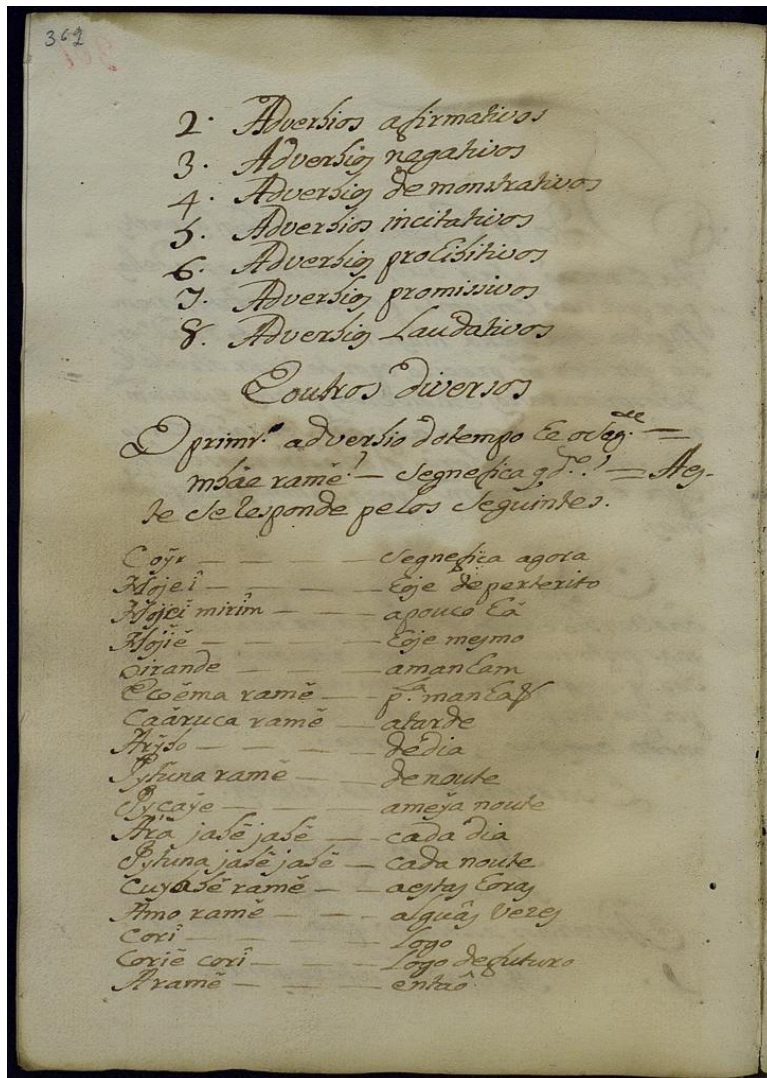 362
2. Adverbios afirmativos
3. Adverbios negativos
4. Adverbios demonstrativos
5. Adverbios incitativos
6. Adverbios prohibitivos
7. Adverbios promissivos
8. Adverbios Laudativos
E outros diversos
O primr.º adverbio do tempo he o seg.te =
mbáe ramẽ? — segnefica q.do? = A es-
te se responde pelos seguintes.
Coỹr — — — segnefica agora
Hojeî — — — hoje de perterito
Hojeî mirĩm — — apouco há
Hojiẽ — — — hoje mesmo
Oirande — — — amanham
Coẽma ramẽ — — p.ª manhaã
Caâruca ramẽ — — atarde
Arỹbo — — — de dia
Pytuna ramẽ — — de noute
Pyçaýe — — — ameya noute
Ara jabẽ jabẽ — — cada dia
Pytuna jabẽ jabẽ — cada noute
Cuyabẽ ramẽ — — aestas horas
Amo ramẽ — — — alguãs vezes
Corî — — — Logo
Coriẽ corî — — — Logo de futuro
Aramẽ — — — entaõ